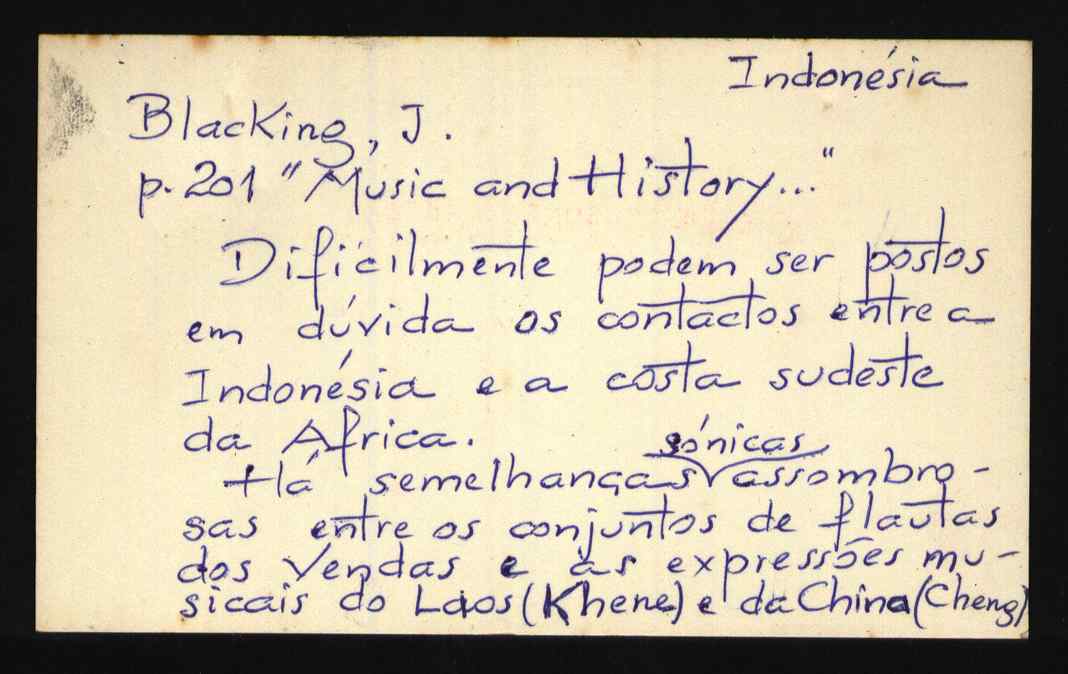 Indonésia
Blacking, J.
p. 201 "Music and History..."
Dificilmente podem ser postos
em dúvida os contactos entre a
Indonésia e a costa sudeste
da Africa.
sónicas
Há semelhanças assombro-
sas entre os conjuntos de flautas
dos Vendas e as expressões mu-
sicais do Laos (Khene) e da China (Cheng)